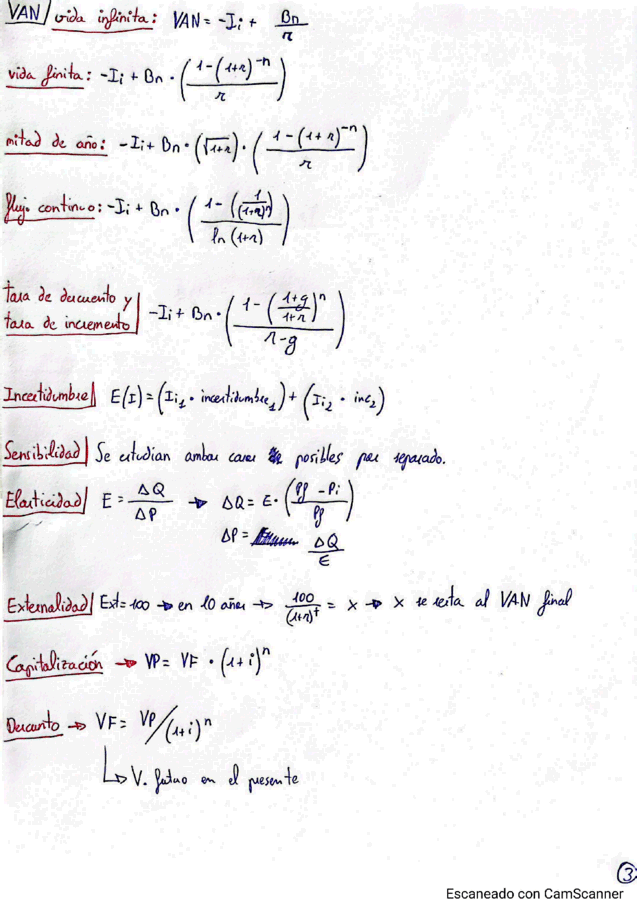 VAN / vida infinita: VAN = -Ii + Bn / r
vida finita: -Ii + Bn · ( (1 - (1+r)^-n) / r )
mitad de año: -Ii + Bn · (√(1+r)) · ( (1 - (1+r)^-n) / r )
flujo continuo: -Ii + Bn · ( (1 - (1 / (1+r)^n)) / ln (1+r) )
tasa de descuento y
tasa de incremento | -Ii + Bn · ( (1 - ((1+g) / (1+r))^n) / (r-g) )
Incertidumbre | E(I) = (Ii1 · incertidumbre1) + (Ii2 · inc2)
Sensibilidad | Se estudian ambos casos posibles por separado.
Elasticidad | E = ΔQ / ΔP → ΔQ = E · ( (Pf - Pi) / Pf )
ΔP = ΔQ / E
Externalidad | Ext = 100 → en 10 años → 100 / (1+r)^t = x → x se resta al VAN final
Capitalización → VP = VF · (1+i)^n
Descuento → VF = VP / (1+i)^n
↳ V. futuro en el presente
3
Escaneado con CamScanner